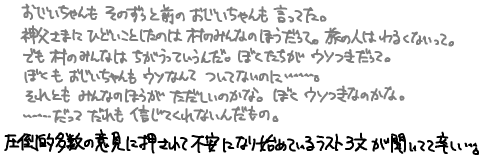 おじいちゃんも そのずっと前の おじいちゃんも 言ってた。
神父さまに ひどいことしたのは 村のみんなの ほうだって。 旅の人は わるくないって。
でも 村のみんなは ちがうっていうんだ。 ぼくたちが ウソつきだって。
ぼくも おじいちゃんも ウソなんて ついてないのに……。
それとも みんなのほうが ただしいのかな。 ぼく ウソつきなのかな。
……だって だれも 信じてくれないんだもの。
圧倒的多数の意見に押されて不安になり始めているラスト3文が聞いてて辛い。